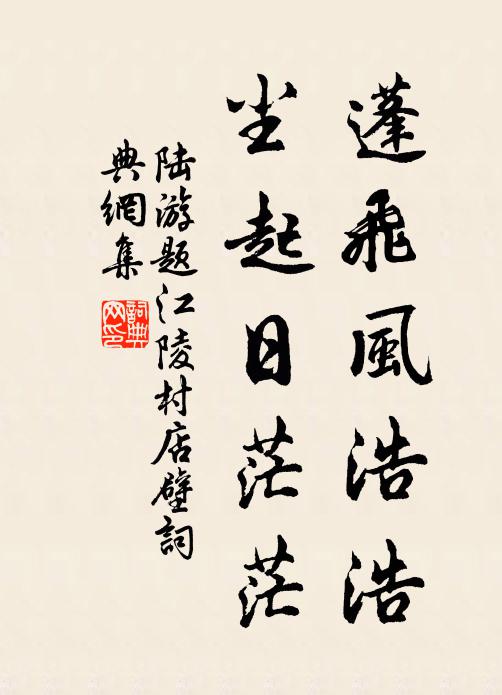 蓬飛風浩浩
尘起日茫茫
陆游题江陵村店壁詞
典網集
詞典
网印